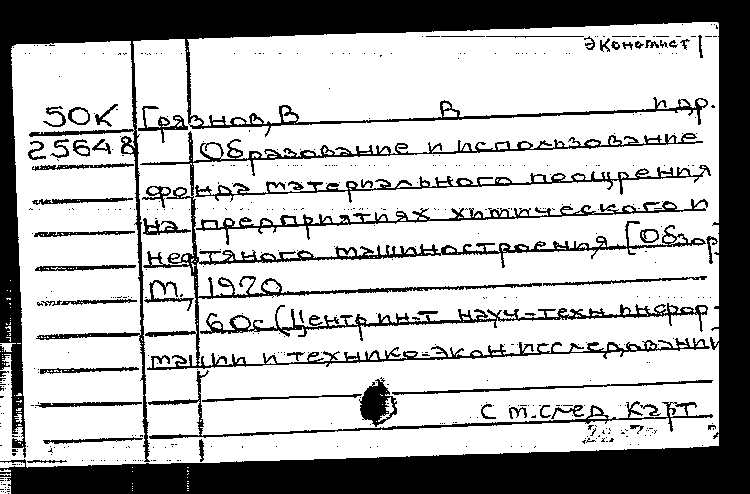 Экономист
50К Грязнов, В В и др.
25648 Образование и использование
фонда материального поощрения
на предприятиях химического и
нефтяного машиностроения [Обзор
М., 1970
60с (Центр ин-т науч-техн. инфор-
мации и технико-экон. исследований
см. след. карт